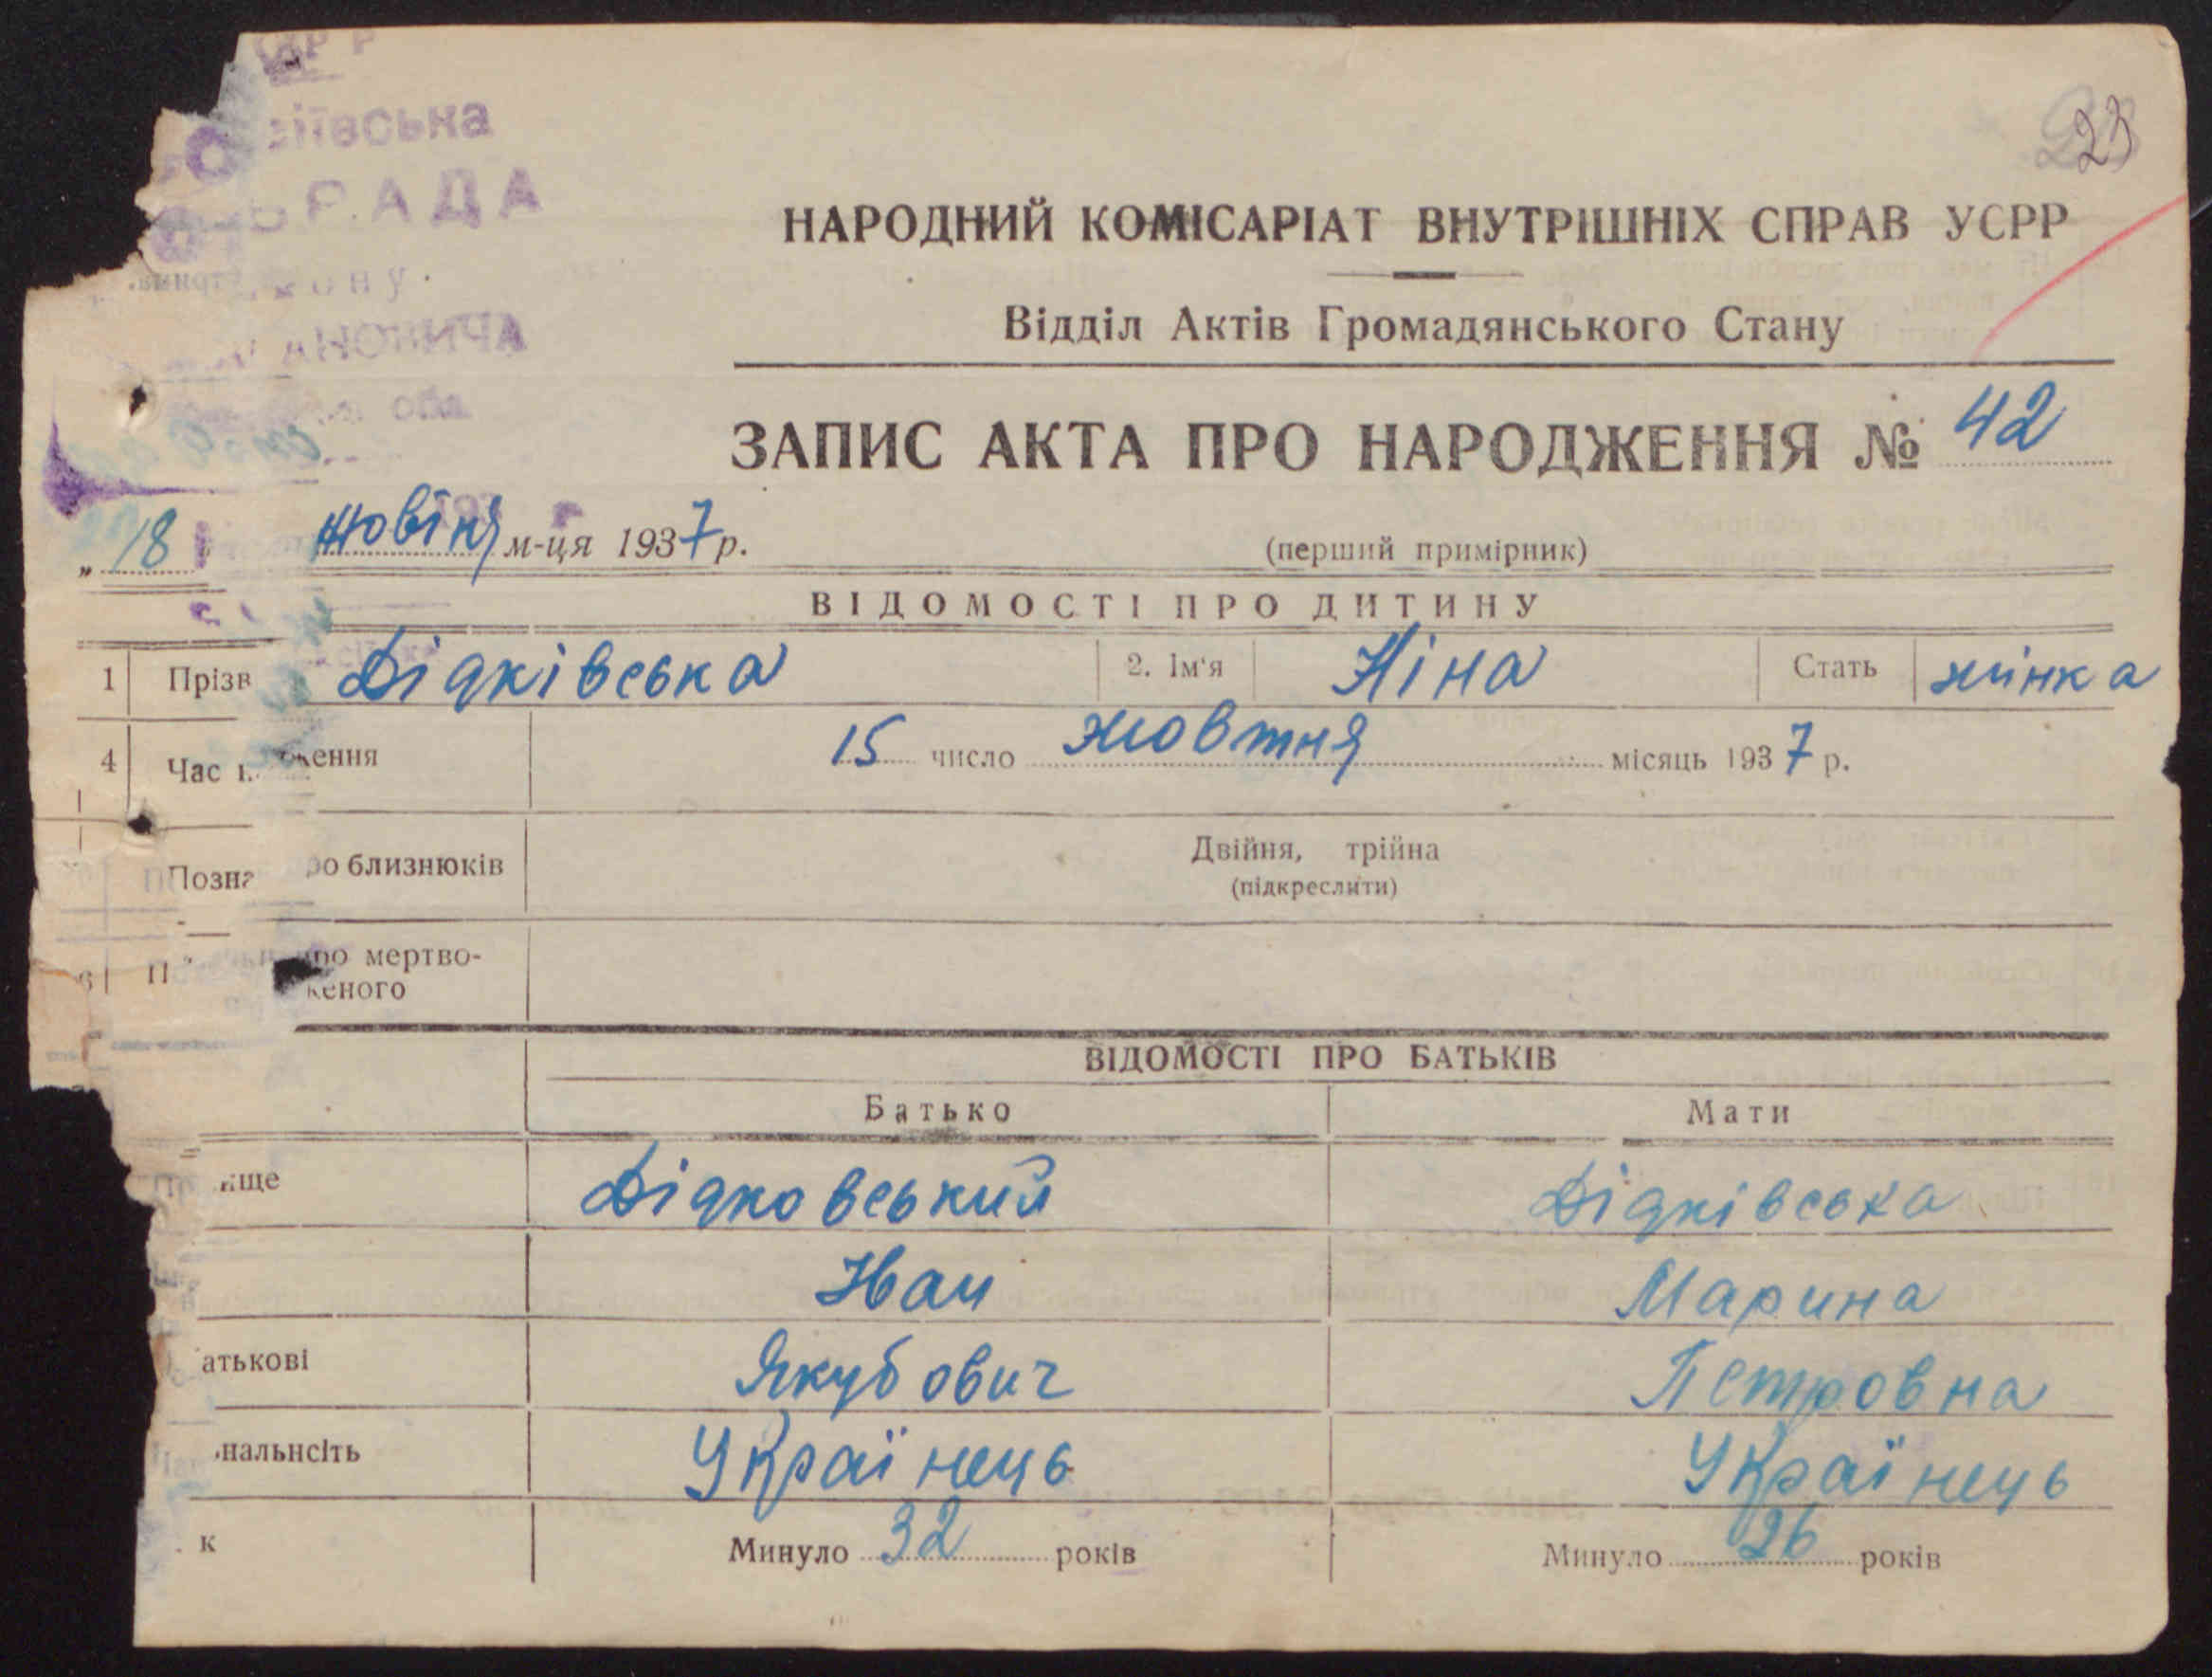 ЬРАДА
23
НАРОДНИЙ КОМІСАРІАТ ВНУТРІШНІХ СПРАВ УСРР
Відділ Актів Громадянського Стану
ЗАПИС АКТА ПРО НАРОДЖЕННЯ № 42
„18 м-ця 1937 р. (перший примірник)
ВІДОМОСТІ ПРО ДИТИНУ
1 Прізв Дідківська 2. Ім'я Ніна Стать жінка
4 Час ження 15 число жовтня місяць 1937 р.
Позна ро близнюків Двійня, трійна
(підкреслити)
6 П про мертво-
женого
ВІДОМОСТІ ПРО БАТЬКІВ
Батько Мати
ище Дідковський Дідківська
Іван Марина
атькові Якубович Петровна
нальнсіть Українець Українець
к Минуло 32 років Минуло 26 років